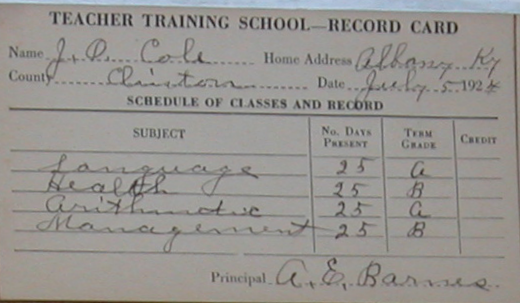 TEACHER TRAINING SCHOOL—RECORD CARD
Name J. O. Cole Home Address Albany Ky
County Clinton Date July 5 1924
SCHEDULE OF CLASSES AND RECORD
SUBJECT No. DAYS PRESENT TERM GRADE CREDIT
Language 25 A
Health 25 B
Arithmetic 25 A
Management 25 B
Principal A. E. Barnes.